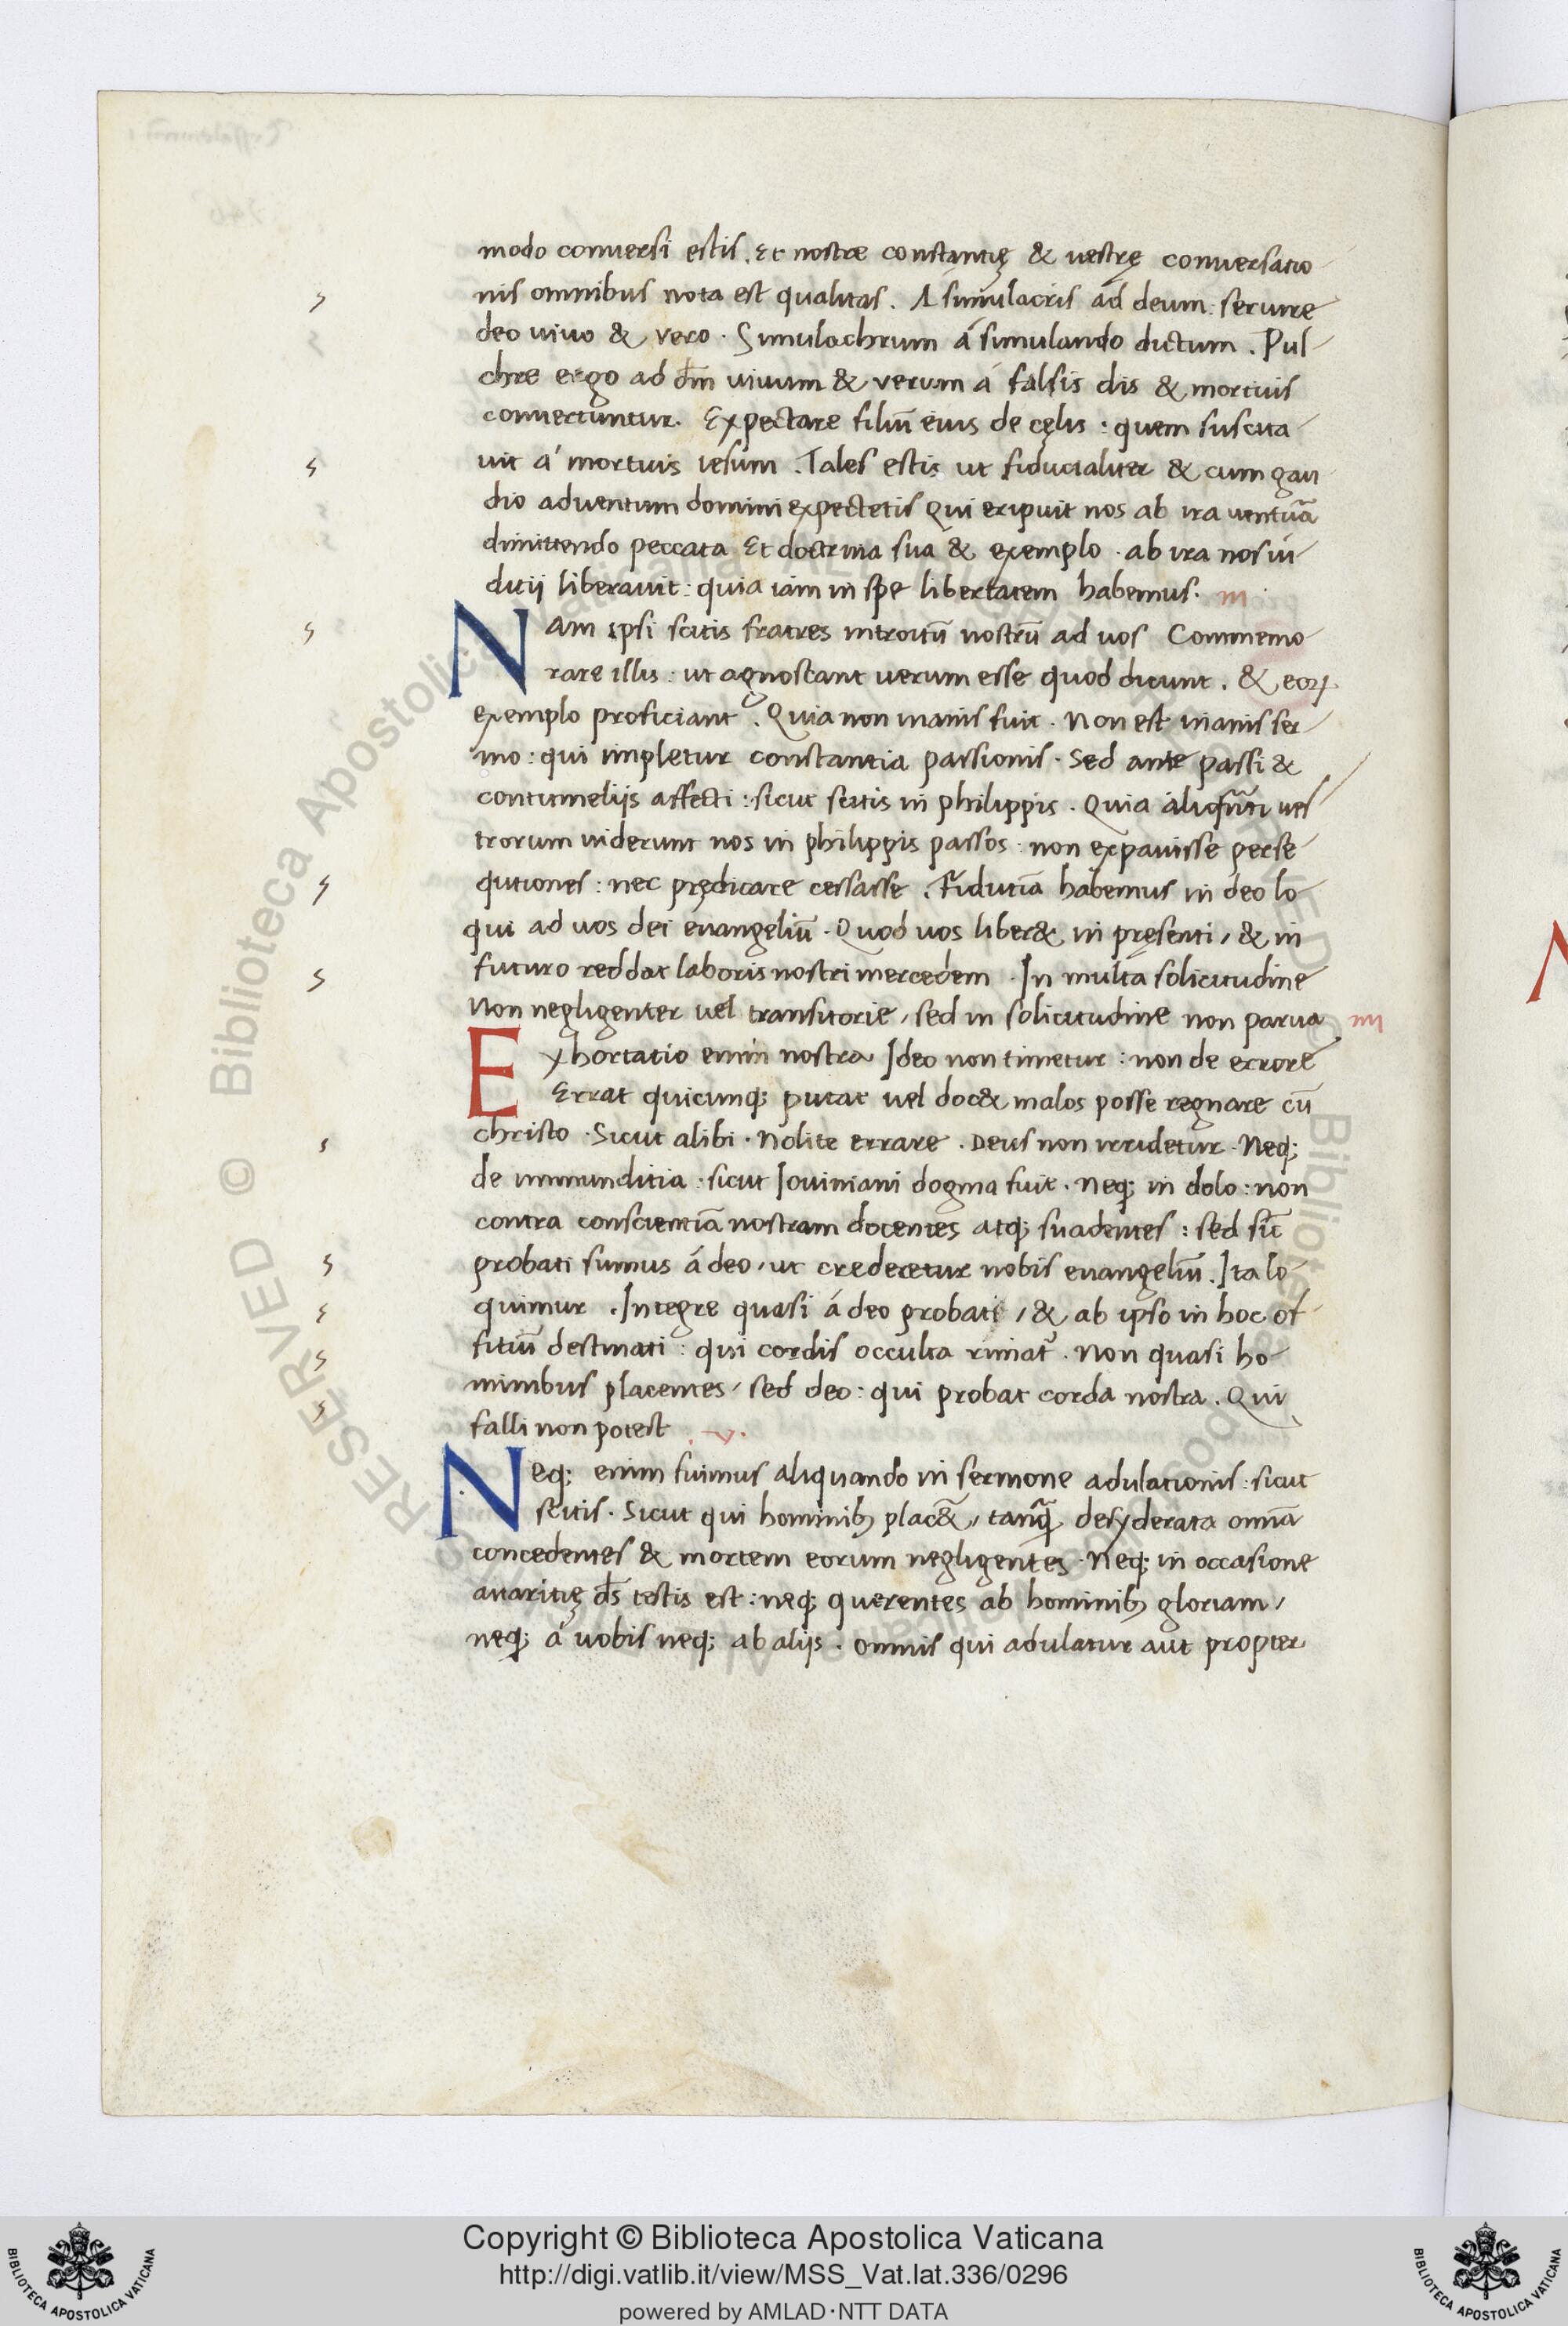 modo conuersi estis. Et nostræ constantię & uestrę conuersatio-
nis omnibus nota est qualitas. A simulacris ad deum: seruire
deo uiuo & vero. Simulachrum á simulando dictum. Pul-
chre ergo ad dm̄ uiuum & verum á falsis dis & mortuis
conuertuntur. Expectare filiū eius de cęlis: quem suscita-
uit á mortuis iesum. Tales estis ut fiducialiter & cum gau-
dio aduentum domini expectetis Qui eripuit nos ab ira uentura
dimittendo peccata Et doctrina sua & exemplo. ab ira nos iu-
ditij liberauit: quia iam in spe libertatem habemus. iii
Nam ipsi scitis fratres introitū nostrū ad uos Commemo-
rare illis: ut agnoscant uerum esse quod dicunt. & eoꝝ
exemplo proficiant. Quia non inanis fuit. Non est inanis ser-
mo: qui impletur constantia passionis. Sed ante passi &
contumelijs affecti: sicut scitis in philippis. Quia uel
trorum uiderunt nos in philippis passos: non expauisse perse-
qutiones: nec prędicare cessasse. Fidutiā habemus in deo lo-
qui ad uos dei euangeliū. Quod uos liber& in pręsenti, & in
futuro reddat laboris nostri mercedem. In multa solicitudine
Non negligenter uel transitorie, sed in solicitudine non parua iiii
Exhortatio enim nostra Ideo non timetur: non de errore
Errat quicunq; putat uel doc& malos posse regnare cū
christo. Sicut alibi. Nolite errare. Deus non irridetur. Neq;
de immunditia: sicut Iouiniani dogma fuit. Neq; in dolo: non
contra conscientiā nostram docentes atq; suadentes: sed sic̄
probati sumus á deo, ut crederetur nobis euangeliū. Ita lo-
quimur. Integre quasi á deo probati, & ab ipso in hoc of-
fitiū destinati: qui cordis occulta rimat᷑. Non quasi ho-
minibus placentes, sed deo: qui probat corda nostra. Qui
falli non potest .v.
Neq; enim fuimus aliquando in sermone adulationis: sicut
scitis. Sicut qui hominib; plac&, tanq̄ desyderata omīa
concedentes & mortem eorum negligentes. Neq; in occasione
auaritię ds̄ testis est: neq; querentes ab hominib; gloriam,
neq; á uobis neq; ab alijs. omnis qui adulatur aut propter
Copyright © Biblioteca Apostolica Vaticana
http://digi.vatlib.it/view/MSS_Vat.lat.336/0296
powered by AMLAD·NTT DATA